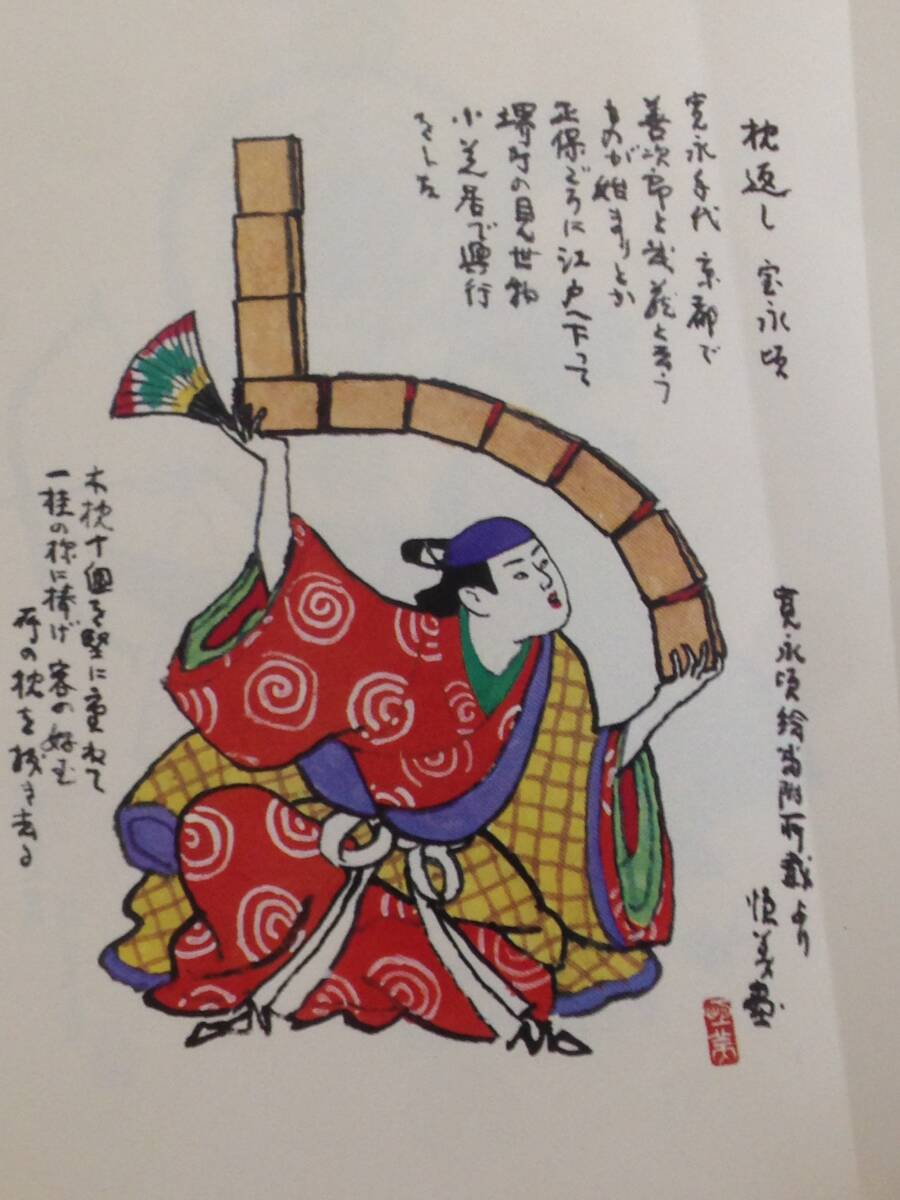 枕返し 宝永頃
寛永年代 京都で
善次郎と
ものが始まりとか
正保ごろに江戸へ下って
堺町の見世物
小芝居で興行
をした
木枕十個を堅に重ねて
一柱の様に捧げ 客の好む
所の枕を抜き去る
寛永頃絵 附所載より